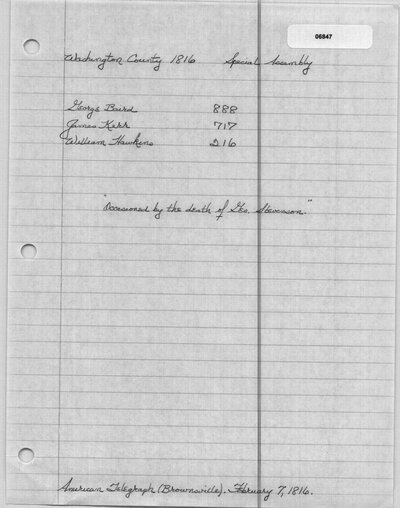 06847
Washington County 1816 Special Assembly
George Baird 888
James Kerr 717
William Hawkins 216
"Occasioned by the death of Geo. Stevenson."
American Telegraph (Brownsville). February 7, 1816.